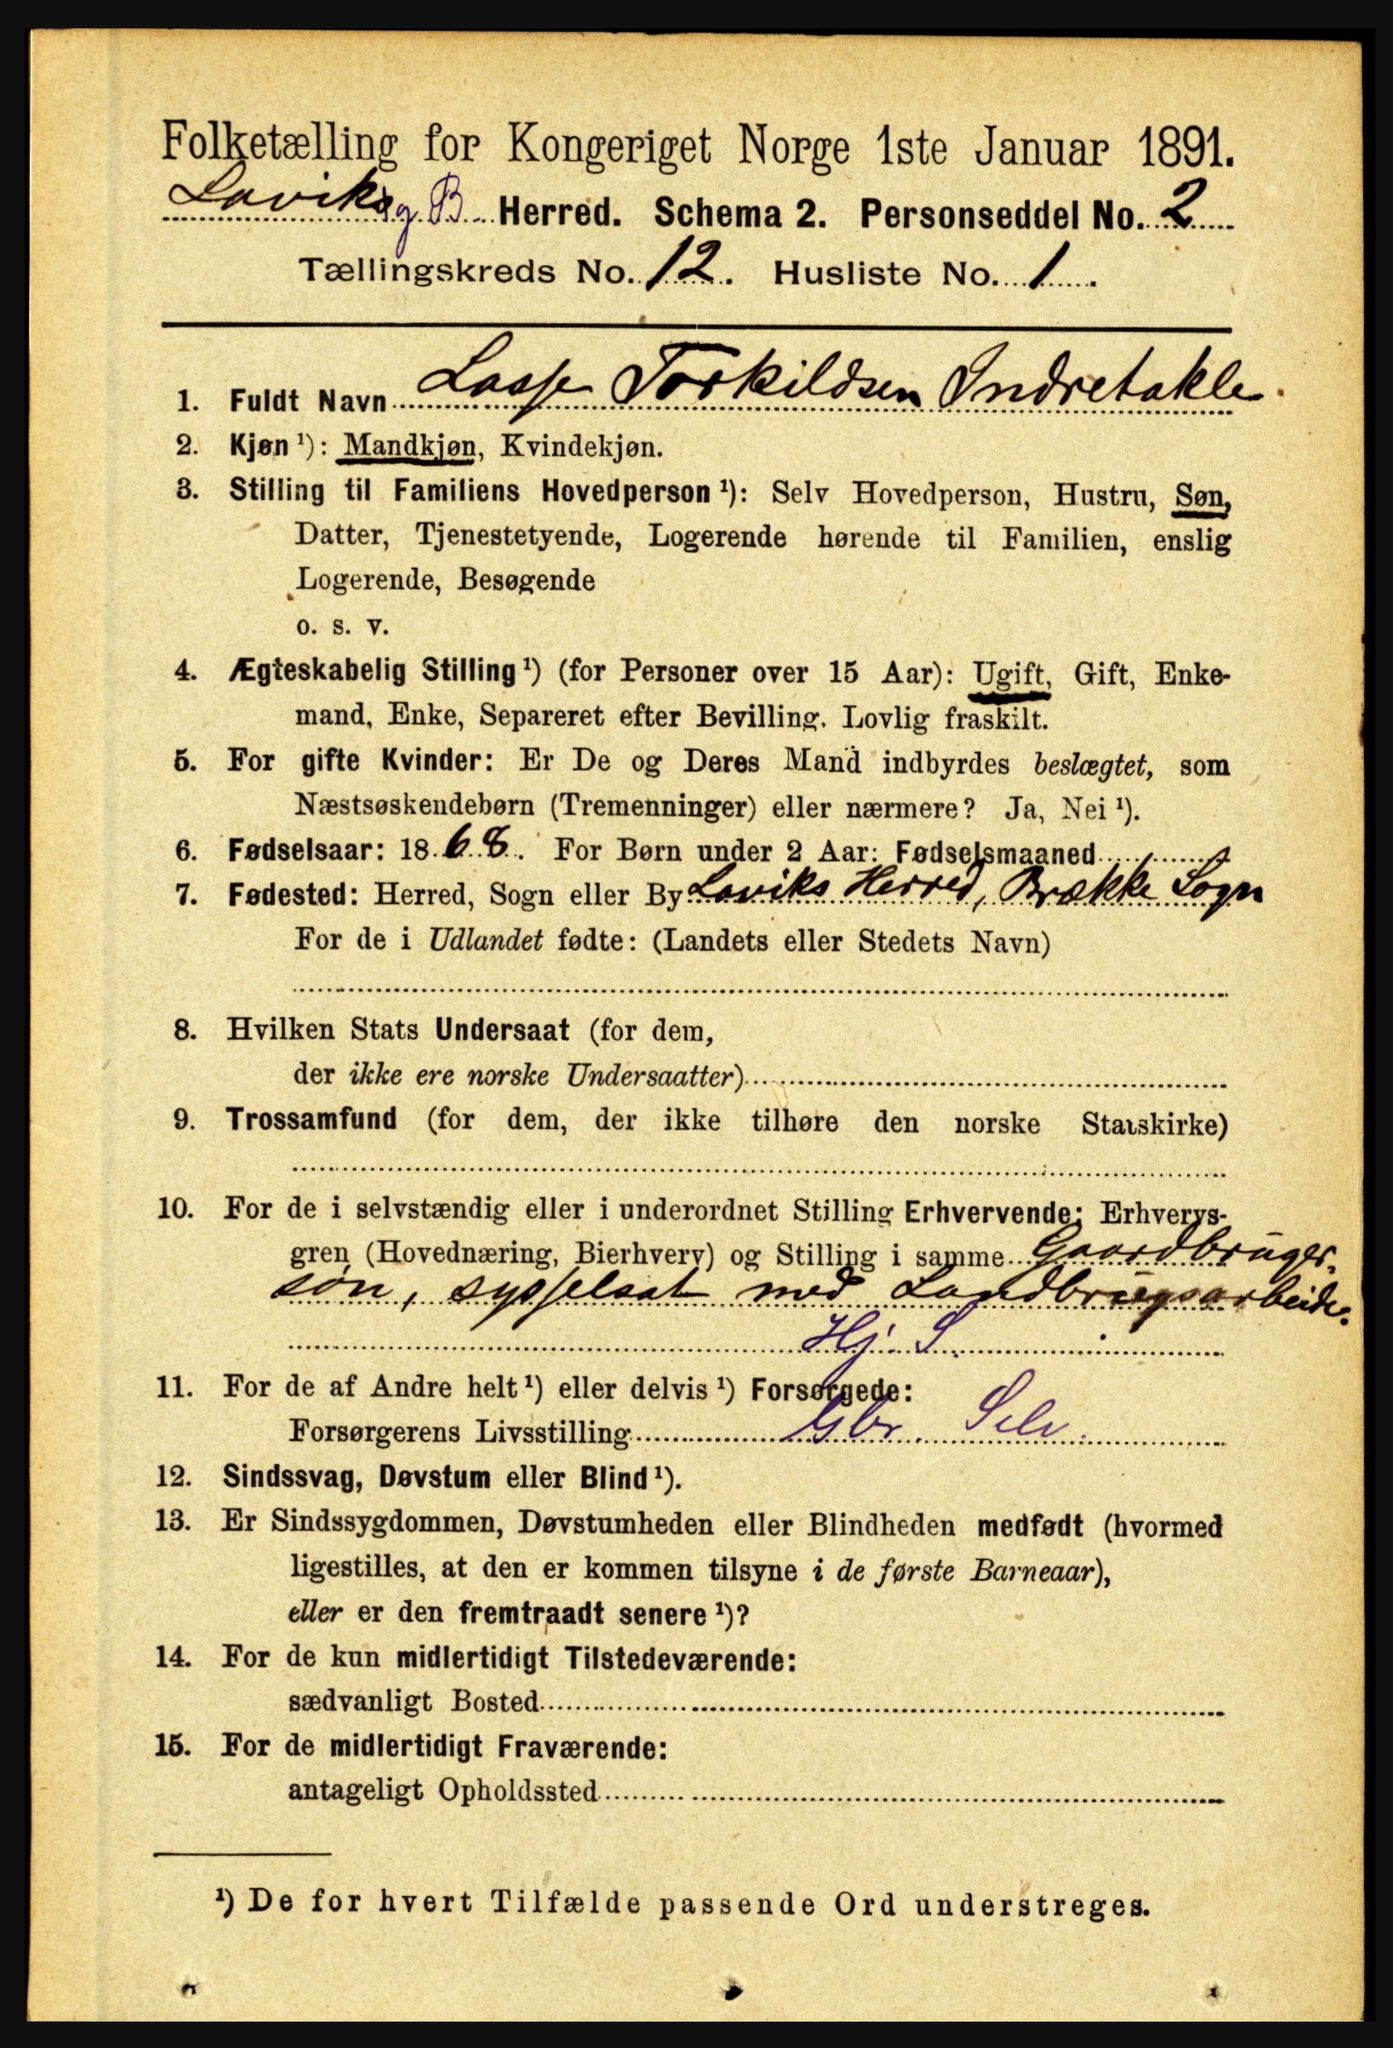 Folketælling for Kongeriget Norge 1ste Januar 1891.
Laviks og B. Herred. Schema 2. Personseddel No. 2
Tællingskreds No. 12. Husliste No. 1.
1. Fuldt Navn Lasse Torkildsen Indretakle.
2. Kjøn ¹): Mandkjøn, Kvindekjøn.
3. Stilling til Familiens Hovedperson ¹): Selv Hovedperson, Hustru, Søn,
Datter, Tjenestetyende, Logerende hørende til Familien, enslig
Logerende, Besøgende
o. s. v.
4. Ægteskabelig Stilling ¹) (for Personer over 15 Aar): Ugift, Gift, Enke-
mand, Enke, Separeret efter Bevilling. Lovlig fraskilt.
5. For gifte Kvinder: Er De og Deres Mand indbyrdes beslægtet, som
Næstsøskendebørn (Tremenninger) eller nærmere? Ja, Nei ¹).
6. Fødselsaar: 1868. For Børn under 2 Aar: Fødselsmaaned
7. Fødested: Herred, Sogn eller By Laviks Herred, Brække Sogn
For de i Udlandet fødte: (Landets eller Stedets Navn)
8. Hvilken Stats Undersaat (for dem,
der ikke ere norske Undersaatter)
9. Trossamfund (for dem, der ikke tilhøre den norske Statskirke)
10. For de i selvstændig eller i underordnet Stilling Erhvervende: Erhvervs-
gren (Hovednæring, Bierhverv) og Stilling i samme Gaardbruger-
søn, sysselsat med Landbrugsarbeide.
Hj. S.
11. For de af Andre helt ¹) eller delvis ¹) Forsørgede:
Forsørgerens Livsstilling Gbr. Selv.
12. Sindssvag, Døvstum eller Blind ¹).
13. Er Sindssygdommen, Døvstumheden eller Blindheden medfødt (hvormed
ligestilles, at den er kommen tilsyne i de første Barneaar),
eller er den fremtraadt senere ¹)?
14. For de kun midlertidigt Tilstedeværende:
sædvanligt Bosted
15. For de midlertidigt Fraværende:
antageligt Opholdssted
¹) De for hvert Tilfælde passende Ord understreges.